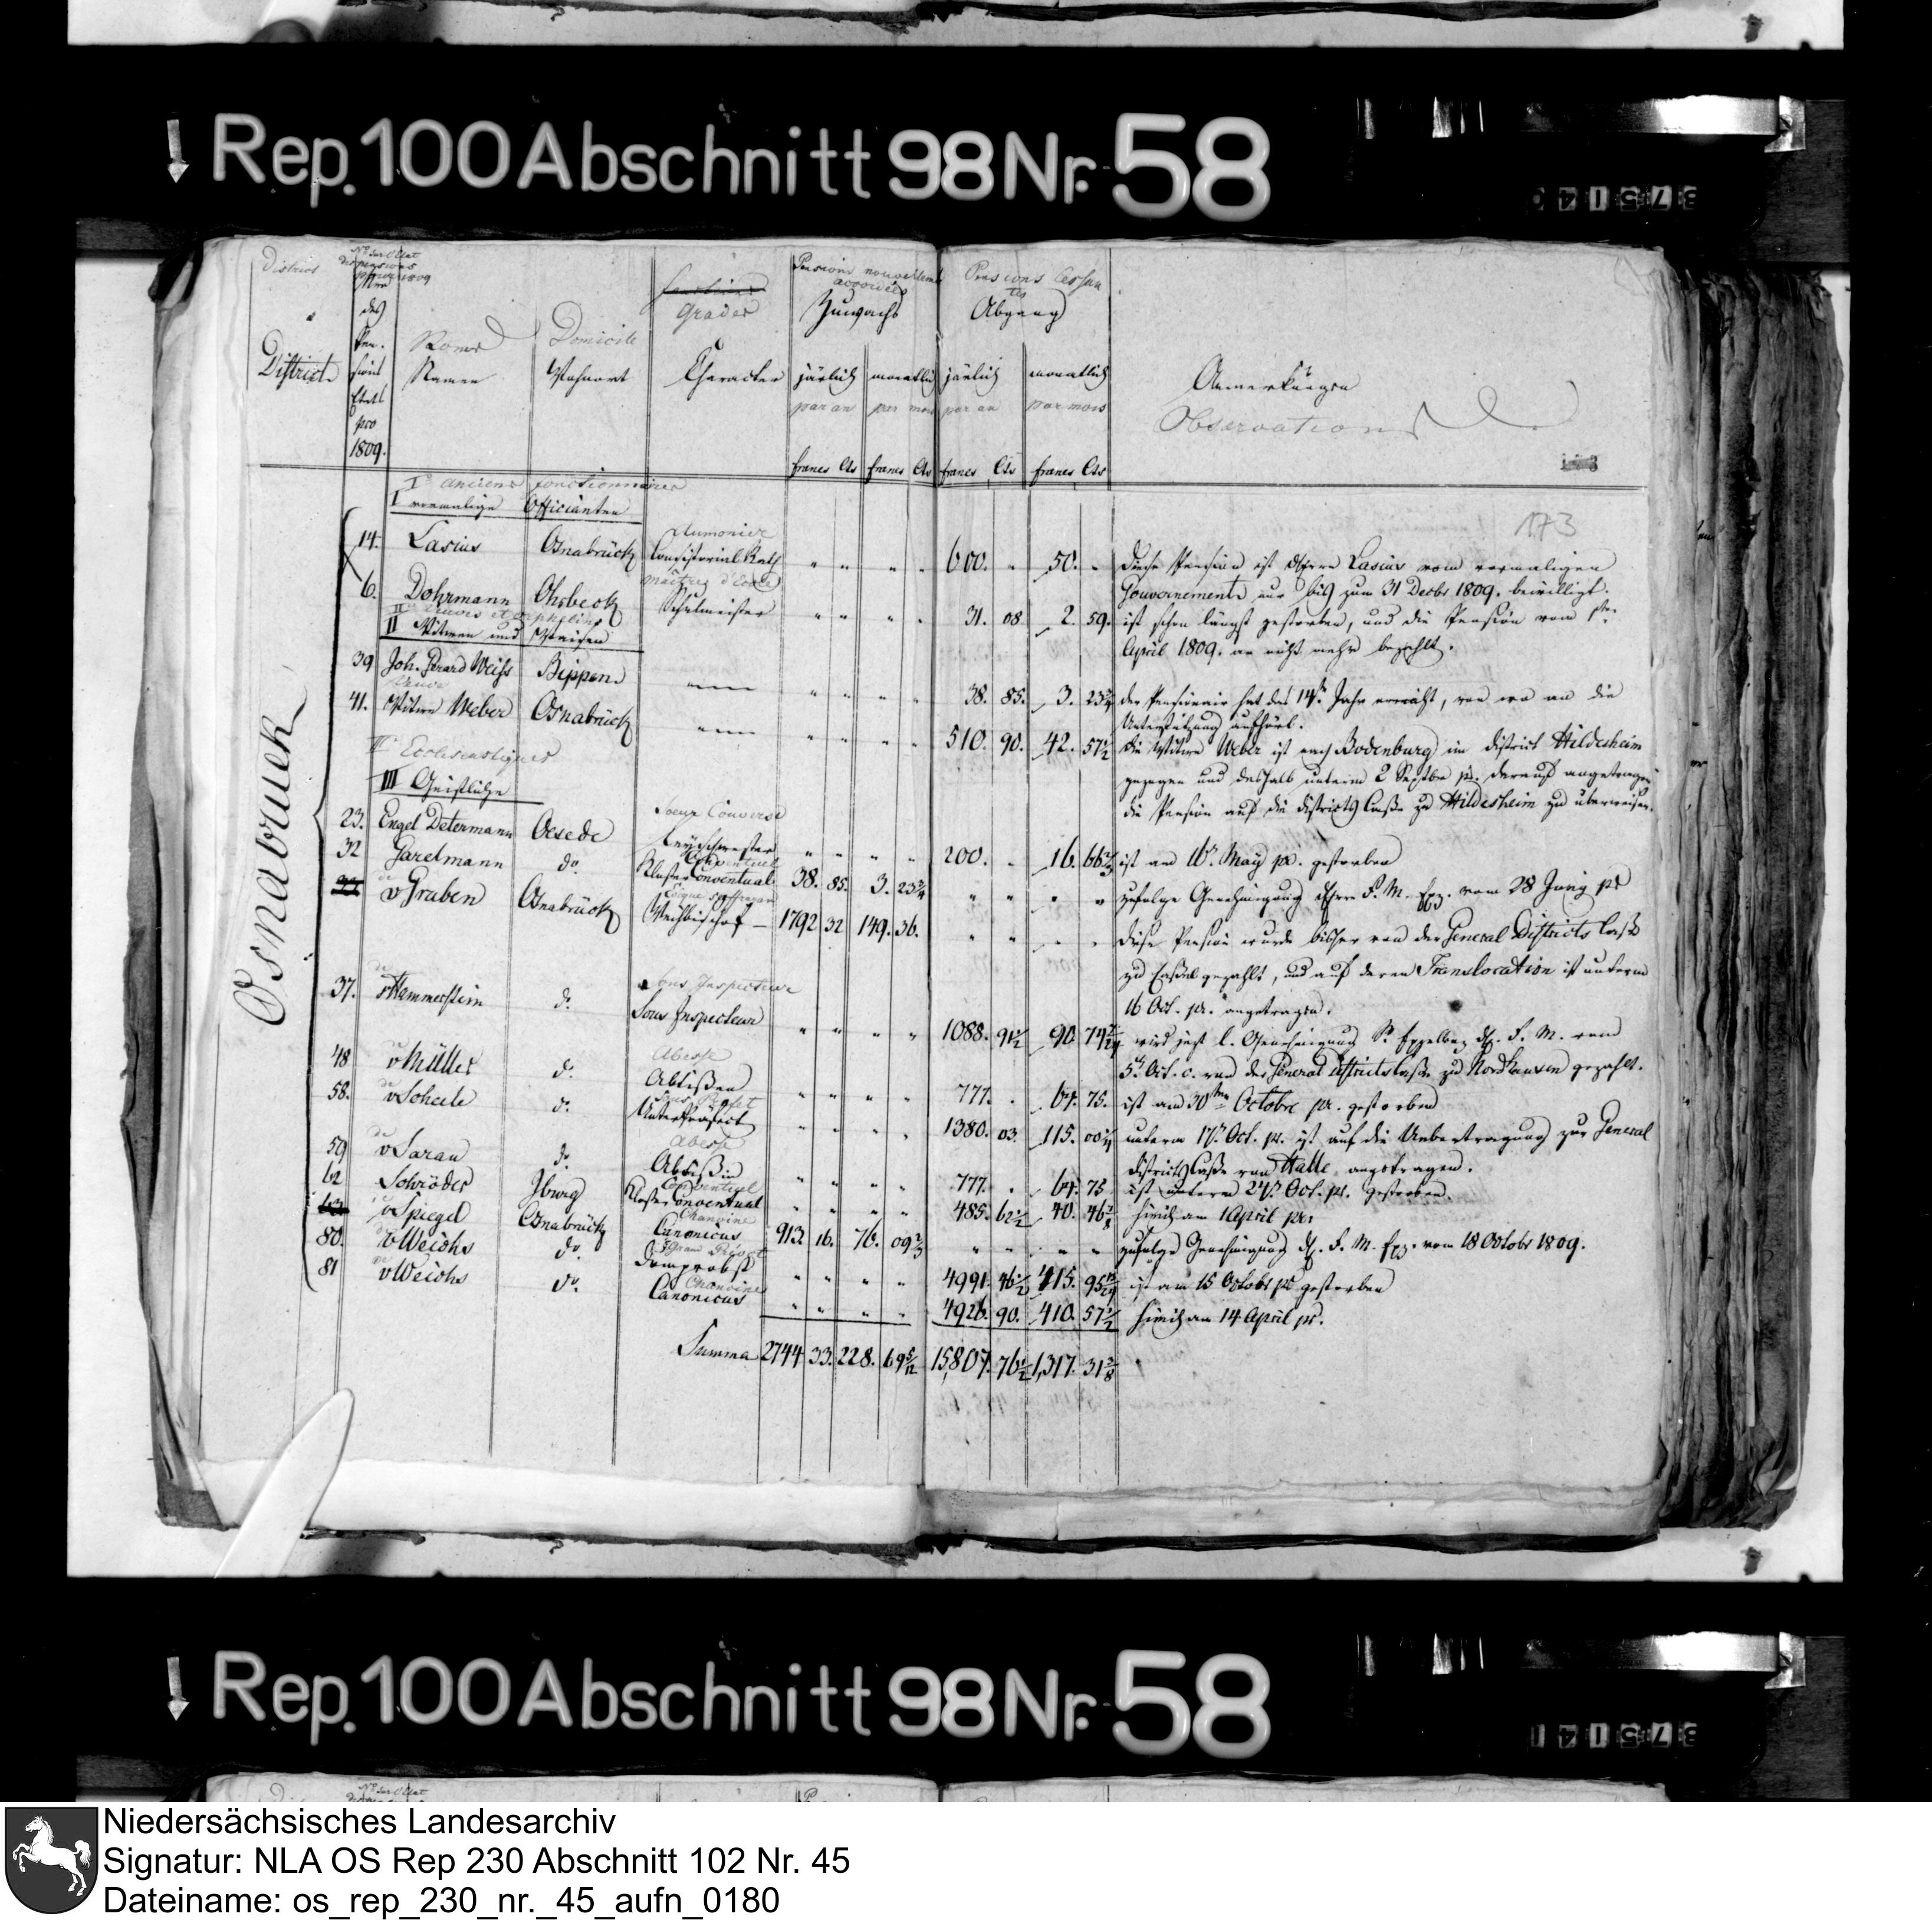 Rep. 100 Abschnitt 98 Nr. 58
District
No sur l'Etat des pensions pour 1809
Grades
Pensions nouvellement accordées
Pensions cessantes
Zuwachs
Abgang
District
des Pensions Etats pro 1809.
Noms
Namen
Domicile
Wohnort
Character
järlich
monatlich
järlich
monatlich
Anmerkungen
par an
par mois
par an
par mois
Observations
francs Cts francs Cts francs Cts francs Cts
I° anciens fonctionnaires
I vormalige Officianten
173
Osnabruck
Aumonier
14. Lasius Osnabrück Consistorial Rath " " " " 600. " 50. " Diese Pension ist dem Herrn Lasius vom vormaligen
Gouvernement nur bis zum 31 Decbr 1809. bewilligt.
maitre d'Ecole
6. Dohrmann Ohrbeck Schulmeister " " " " 31. 08 2. 59. ist schon längst gestorben, und die Pension vom 1ten
April 1809. an nicht mehr bezahlt.
II° veuves et orphelins
II Witwen und Waisen
39 Joh. Gerard Weiss Bippen " " " " 38. 85. 3. 23¾ der Pensionair hat das 14te Jahr erreicht, von wo an die
Unterstützung aufhört.
Veuve
41. Witwe Weber Osnabrück " " " " 510. 90. 42. 57½ Die Witwe Weber ist nach Bodenburg im District Hildesheim
gezogen und deshalb unterm 2 Septbr pr. darauf angetragen
die Pension auf die Districts Casse zu Hildesheim zu überweisen.
III° Ecclesiastiques
III Geistliche
Soeur Converse
23. Engel Determann Oesede Layschwester " " " " 200. " 16. 66⅔ ist am 16t May pr. gestorben
Conventuel
32 Garelmann do. Kloster Conventual 38. 85. 3. 23¾ " " " " zufolge Genehmigung des Herrn F. M. Exz. vom 28 Juny pr
Eveque suffragan
de
v Gruben Osnabrück Weihbischof 1792 32 149. 36. " " " " diese Pension wurde bisher von der General Districts Casse
zu Cassel gezahlt, und auf deren Translocation ist unterm
16 Oct. pr. angetragen.
Sous Inspecteur
de
37. v Hammerstein do. Sous Inspecteur " " " " 1088. 91½ 90. 74 wird jetzt l. Genehmigung Sr Exzellenz des H. F. M. vom
5t Oct. c. von der General Districts Casse zu Nordhausen gezahlt.
Abesse
48 v Müller do. Abtissen " " " " 777. . 64. 75. ist am 30ten Octobre pr. gestorben
Sous Prefet
de
58. v Schele do. Unterpräfect " " " " 1380. 03. 115. 00 unterm 17t Oct. pr. ist auf die Uebertragung zur General
Districts Casse von Halle angetragen.
Abesse
de
59 v Saran do. Abtissin " " " " 777. . 64. 75 ist unterm 24t Oct. pr. gestorben.
Conventuel
62 Schröder Iburg Kloster Conventual " " " " 485. 62½ 40. 46 am 1 April pr.
Chanoine
v Spiegel Osnabrück Canonicus 913. 16. 76. 09⅔ " " " " zufolge Genehmigung d. H. F. M. Exz. vom 18 Octobr 1809.
Grand Prévot
80. v Weichs do. Domprobst " " " " 4991. 46½ 415. 95 ist am 15 Octobr pr gestorben
Chanoine
de
81 v Weichs do. Canonicus " " " " 4926. 90. 410. 57½ am 14 April pr.
Summa 2744 33. 228. 69 5/12 15,807. 76½ 1,317. 31⅜
Rep. 100 Abschnitt 98 Nr. 58
Niedersächsisches Landesarchiv
Signatur: NLA OS Rep 230 Abschnitt 102 Nr. 45
Dateiname: os_rep_230_nr._45_aufn_0180